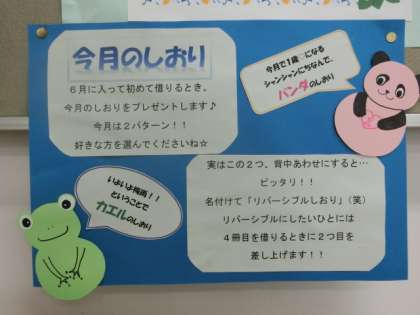 今月のしおり
６月に入って初めて借りるとき、
今月のしおりをプレゼントします♪
今月は２パターン！！
好きな方を選んでくださいね☆
今月で１歳♡になる
シャンシャンにちなんで、
パンダのしおり
いよいよ梅雨！！
ということで
カエルのしおり
実はこの２つ、背中あわせにすると…
ピッタリ！！
名付けて「リバーシブルしおり」（笑）
リバーシブルにしたいひとには
４冊目を借りるときに２つ目を
差し上げます！！